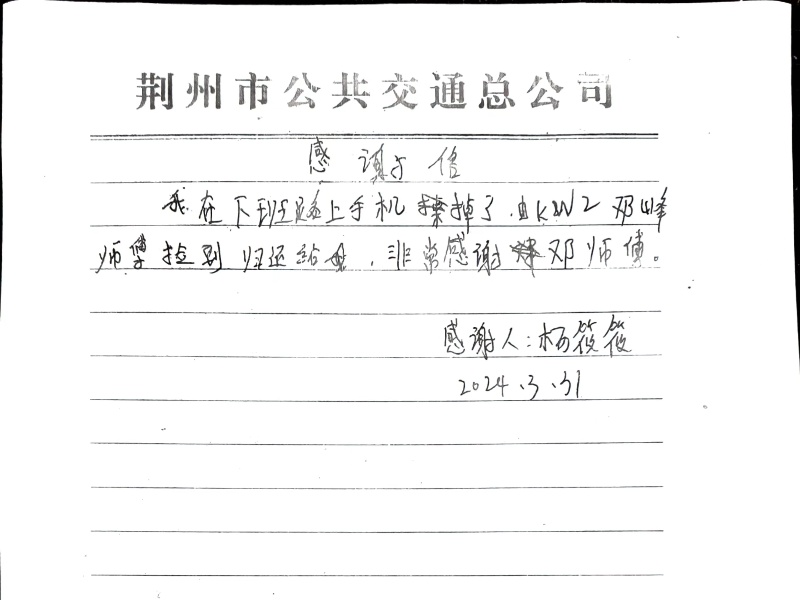 荆州市公共交通总公司
感谢信
我在下班路上手机掉了,由KW2邓峰
师傅捡到归还给我,非常感谢邓师傅。
感谢人:杨筱筱
2024.3.31